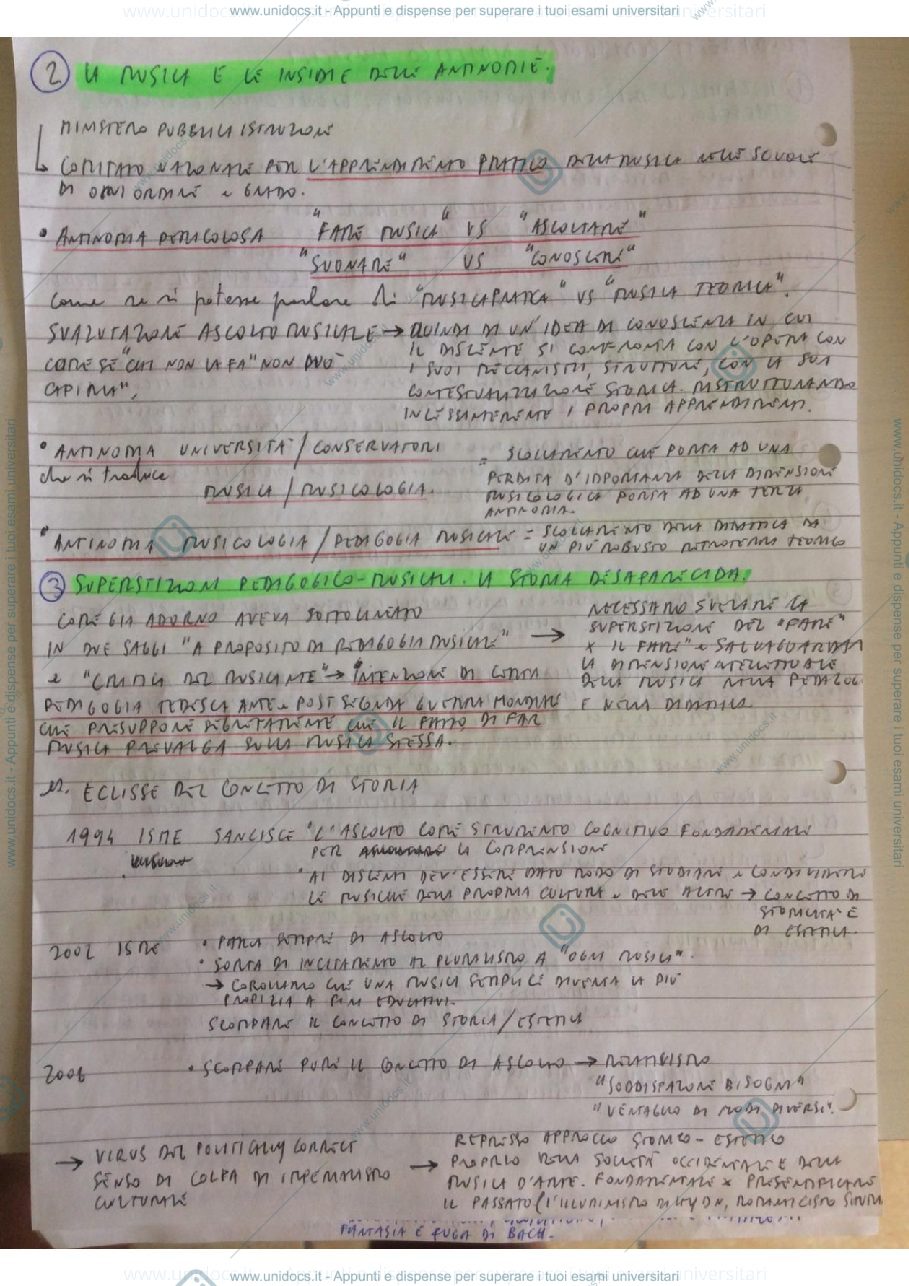 www.unidocs.it - Appunti e dispense per superare i tuoi esami universitari
2 LA MUSICA E LE INSIDIE DELLE ANTINOMIE.
MINISTERO PUBBLICA ISTRUZIONE
COMITATO NAZIONALE PER L'APPRENDIMENTO PRATICO DELLA MUSICA NELLE SCUOLE
DI OGNI ORDINE e GRADO.
• ANTINOMIA PERICOLOSA "FARE MUSICA" VS "ASCOLTARE"
"SUONARE" VS "CONOSCERE"
Come se si potesse parlare di "MUSICA PRATICA" VS "MUSICA TEORICA".
SVALUTAZIONE ASCOLTO MUSICALE → QUINDI DI UN'IDEA DI CONOSCENZA IN CUI
IL DISCENTE SI CONFRONTA CON L'OPERA CON
COME SE "CHI NON LA FA" NON PUÒ
I SUOI MECCANISMI, STRUTTURE, CON LA SUA
CAPIRLA",
CONTESTUALIZZAZIONE STORICA. RISTRUTTURANDO
INCESSANTEMENTE I PROPRI APPRENDIMENTI.
• ANTINOMIA UNIVERSITÀ / CONSERVATORI
che si traduce
MUSICA / MUSICOLOGIA.
= SCOLLAMENTO CHE PORTA AD UNA
PERDITA D'IMPORTANZA DELLA DIMENSIONE
MUSICOLOGICA PORTA AD UNA TERZA
ANTINOMIA.
• ANTINOMIA MUSICOLOGIA / PEDAGOGIA MUSICALE = SCOLLAMENTO DELLA DIDATTICA DA
UN PIÙ ROBUSTO RETROTERRA TEORICO
3 SUPERSTIZIONI PEDAGOGICO-MUSICALI. LA STORIA DESAPARECIDA.
COME GIÀ ADORNO AVEVA SOTTOLINEATO
IN DUE SAGGI "A PROPOSITO DI PEDAGOGIA MUSICALE" →
e "CRITICA DEL MUSICANTE" → INTENZIONE DI
PEDAGOGIA TEDESCA ANTE e POST SECONDA GUERRA MONDIALE
CHE PRESUPPONE SEGRETAMENTE CHE IL FATTO DI FAR
MUSICA PREVALGA SULLA MUSICA STESSA.
NECESSARIO SVELARE LA
SUPERSTIZIONE DEL "FARE"
X IL FARE" e SALVAGUARDARE
LA DIMENSIONE INTELLETTUALE
DELLA MUSICA NELLA PEDAGOG
E NELLA DIDATTICA
es. ECLISSE DEL CONCETTO DI STORIA
1994 ISME SANCISCE • L'ASCOLTO COME STRUMENTO COGNITIVO FONDAMENTALE
PER LA COMPRENSIONE
• AI DISCENTI DEV'ESSERE DATO MODO DI STUDIARE e CONDIVIDERE
LE MUSICHE DELLA PROPRIA CULTURA e DELLE ALTRE → CONCETTO DI
STORICITÀ E
DI ESTETICA.
2002 ISME • PARLA SEMPRE DI ASCOLTO
• SORTA DI INCITAMENTO AL PLURALISMO A "OGNI MUSICA".
→ COROLLARIO CHE UNA MUSICA SEMPLICE DIVENTA LA PIÙ
PROPIZIA A FINI EDUCATIVI.
SCOMPARE IL CONCETTO DI STORIA / ESTETICA
2006 • SCOMPARE PURE IL CONCETTO DI ASCOLTO → RELATIVISMO
"SODDISFAZIONE BISOGNI"
"VENTAGLIO DI MODI DIVERSI".
→ VIRUS DEL POLITICALLY CORRECT
SENSO DI COLPA DI IMPERIALISMO →
CULTURALE
REPRESSO APPROCCIO STORICO - ESTETICO
PROPRIO DELLA SOCIETÀ OCCIDENTALE E DELLA
MUSICA D'ARTE. FONDAMENTALE X PRESENTIFICARE
IL PASSATO (L'ILLUMINISMO DI HAYDN, ROMANTICISMO
FANTASIA E FUGA DI BACH.
www.unidocs.it - Appunti e dispense per superare i tuoi esami universitari